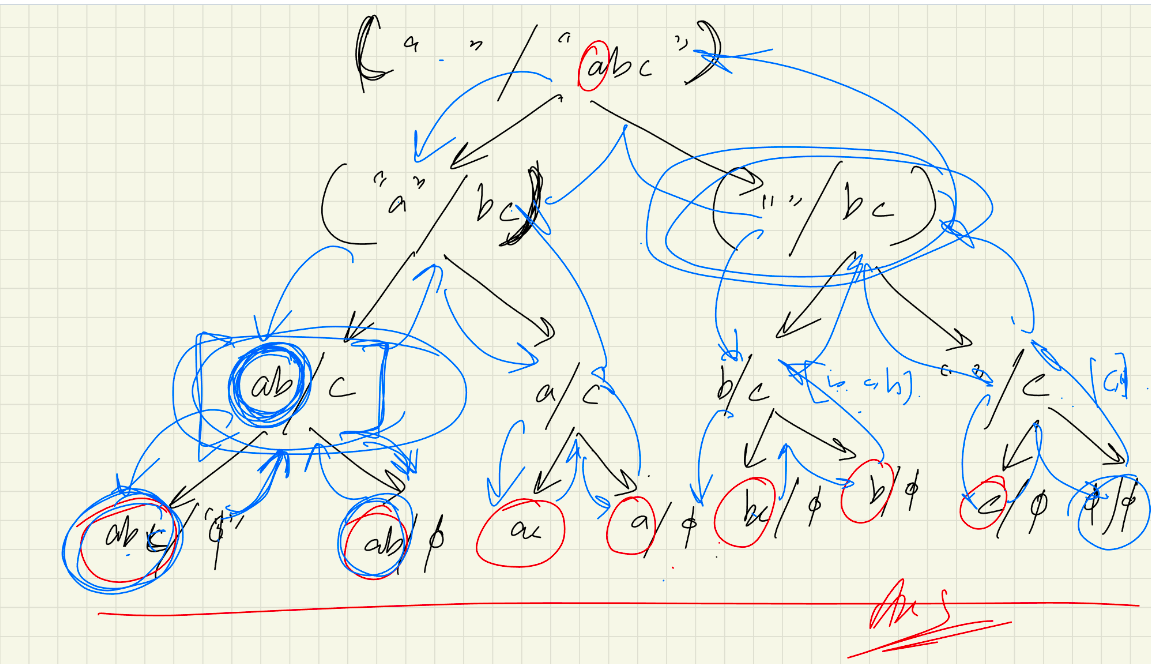 (" " / "abc")
("a" / bc) ("" / bc)
ab / c a / c b / c [b, ab] " " / c [c]
abc / "ϕ" ab / ϕ ac a / ϕ bc / ϕ b / ϕ c / ϕ ϕ / ϕ
Ans